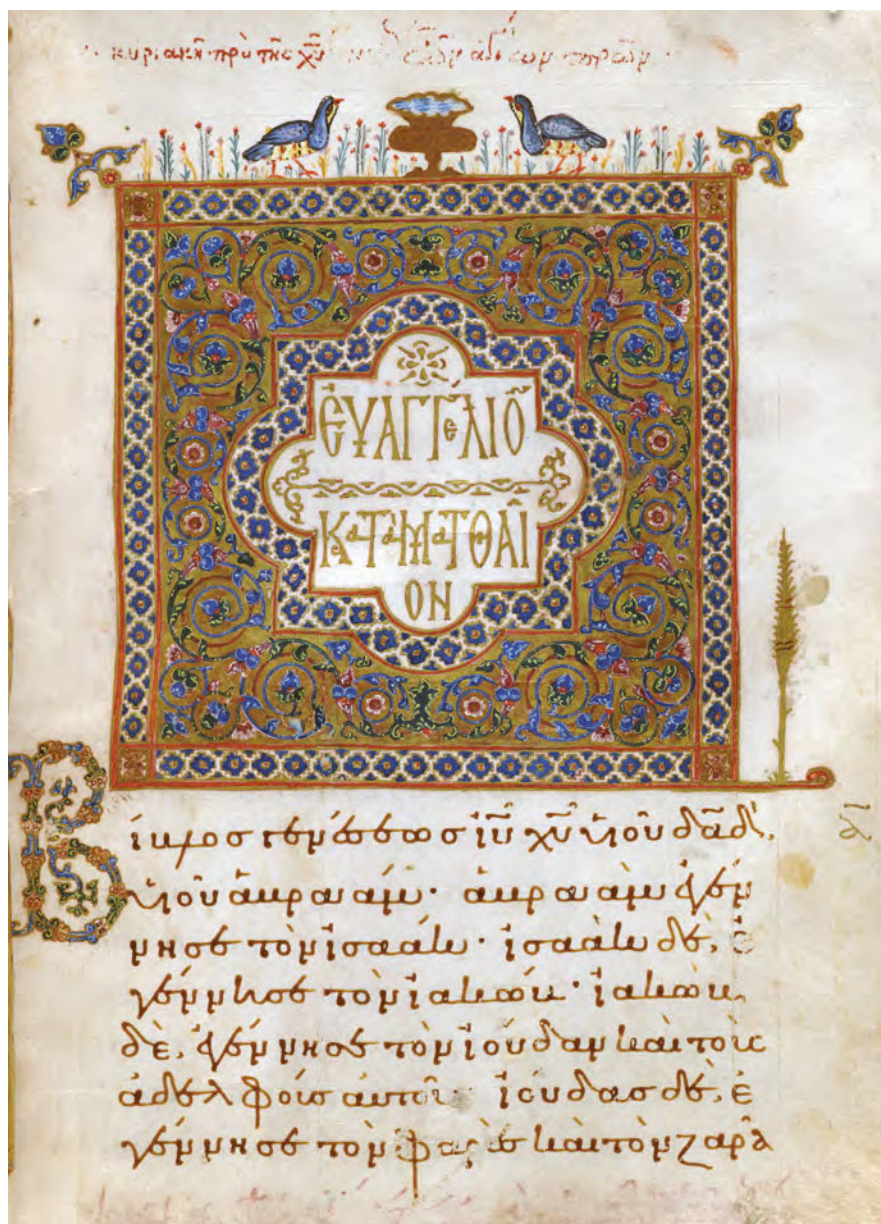 κυριακῆ πρὸ τῆς χῦ
ἐυαγγέλιο̃
κατὰ ματθαῖ
ον
Βίβλος γενέσεως ἰῦ χῦ ὑιοῦ δᾱδ,
ὑιοῦ ἀβρααμ· ἀβρααμ ἐγέν
νησε τὸν ἰσαάκ· ἰσαὰκ δὲ, ἐ
γέννησε τὸν ἰακώβ· ἰακὼβ
δὲ, ἐγέννησε τὸν ἰούδαν καὶ τοὺς
ἀδελφοὺς αὐτοῦ· ἰούδας δὲ, ἐ
γέννησε τὸν φαρὲς καὶ τὸν ζαρὰ